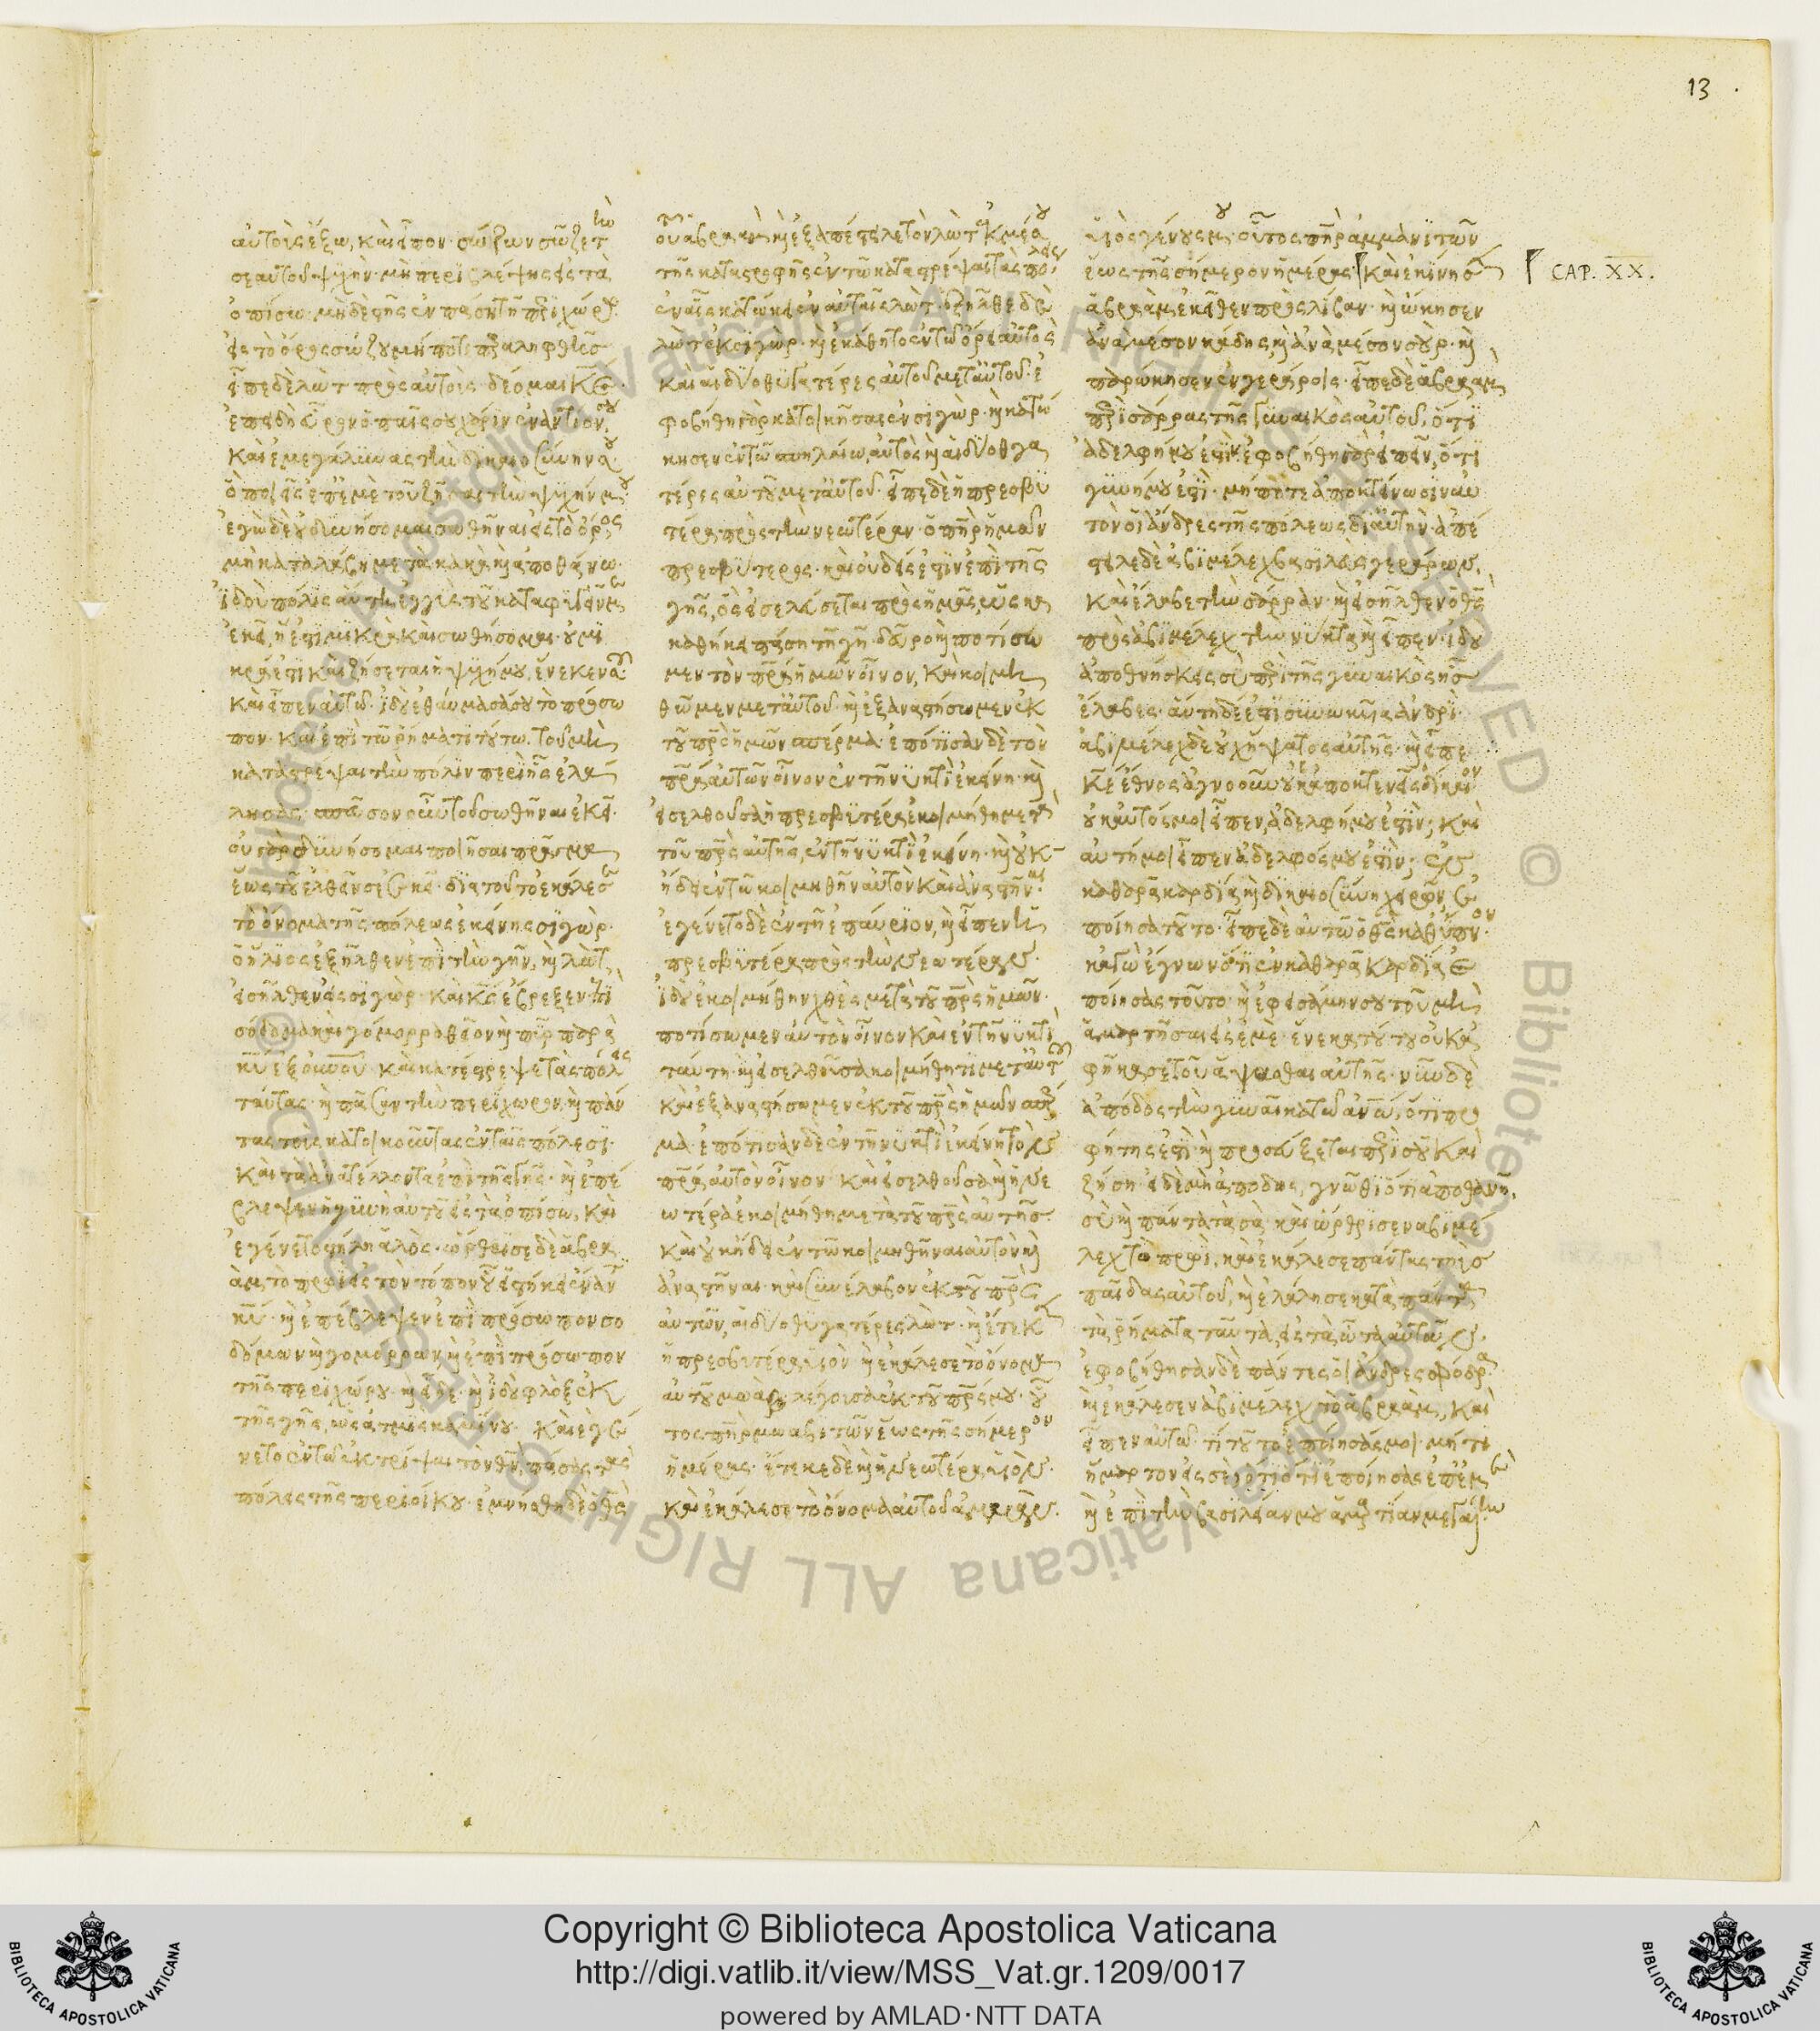 13
αὐτοὺς ἔξω, καὶ εἶπον· σώζων σῶζε τὴν
σεαυτοῦ ψυχήν· μὴ περϊβλέψης εἰς τὰ
ὀπίσω· μηδὲ στῆς ἐν πάσῃ τῇ περϊχώρῳ·
εἰς τὸ ὄρος σώζου μήποτε
εἶπε δὲ λὼτ πρὸς αὐτοὺς· δέομαι κε
ἐπειδὴ εὗρεν ὁ παῖς σου χάριν ἐναντίον σου
καὶ ἐμεγάλυνας τὴν δικαιοσύνην σου
ὃ ποιεῖς ἐπ' ἐμὲ τοῦ ζῆσαι τὴν ψυχήν μου
ἐγὼ δὲ οὐ δυνήσομαι σωθῆναι εἰς τὸ ὄρος
μὴ καταλάβῃ με τὰ κακὰ καὶ ἀποθάνω·
ἰδοὺ πόλις αὕτη ἐγγὺς τοῦ καταφυγεῖν με
ἐκεῖ, ἥ ἐστϊ μϊκρὰ καὶ σωθήσομαι· οὐ μϊ
κρά ἐστι καὶ ζήσεται ἡ ψυχή μου, ἕνεκεν σοῦ
καὶ εἶπεν αὐτῷ· ἰδοὺ ἐθαύμασά σου τὸ πρόσω
πον· καὶ ἐπὶ τῷ ῥήματι τούτῳ· τοῦ μὴ
καταστρέψαι τὴν πόλϊν περὶ ἧς ἐλά
λησας· σπεῦσον οὖν τοῦ σωθῆναι ἐκεῖ·
οὐ γὰρ δυνήσομαι ποιῆσαι πρᾶγμα
ἕως τοῦ ἐλθεῖν σε ἐκεῖ· διὰ τοῦτο ἐκάλεσεν
τὸ ὄνομα τῆς πόλεως ἐκείνης σϊγώρ·
ὁ ἥλϊος ἐξῆλθεν ἐπὶ τὴν γῆν, καὶ λὼτ
εἰσῆλθεν εἰς σϊγώρ· καὶ κς ἔβρεξεν ἐπϊ
σόδομα καὶ γόμορρα θεῖον καὶ πῦρ παρὰ
κυ ἐξ οὐνοῦ· καὶ κατέστρεψε τὰς πόλεις
ταύτας· καὶ πᾶσαν τὴν περίχωρον, καὶ πάν
τας τοὺς κατοικοῦντας ἐν ταῖς πόλεσϊ·
καὶ τὰ ἀνατέλλοντα ἐπὶ τῆς γῆς· καὶ ἐπέ
βλεψεν ἡ γυνὴ αὐτοῦ εἰς τὰ ὀπίσω, καὶ
ἐγένετο στήλη ἁλὸς· ὤρθρϊσε δὲ ἁβρα
ὰμ τὸ πρωῒ εἰς τὸν τόπον οὗ εἱστήκει ἐναντ
κυ· καὶ ἐπέβλεψεν ἐπὶ πρόσωπον σο
δόμων καὶ γομόρρων, καὶ ἐπὶ πρόσωπον
τῆς περϊχώρου· καὶ εἶδε· καὶ ἰδοὺ φλὸξ ἐκ
τῆς γῆς, ὡς ἀτμὶς καμίνου· καὶ ἐγέ
νετο ἐν τῷ ἐκτρίψαι τὸν θν, πάσας τὰς
πόλεις τῆς περιοίκου· ἐμνήσθη δὲ ὁ θς
τοῦ ἁβραὰμ καὶ ἐξαπέστειλε τὸν λὼτ ἐκ μέσου
τῆς καταστροφῆς ἐν τῷ καταστρέψαι τὰς πόλεις
ἐν αἷς κατῴκει ἐν αὐταῖς λὼτ· ἐξῆλθε δὲ
λὼτ ἐκ σϊγὼρ· καὶ ἐκάθητο ἐν τῷ ὄρει αὐτὸς
καὶ αἱ δύο θυγατέρες αὐτοῦ μετ' αὐτοῦ· ἐ
φοβήθη γὰρ κατοικῆσαι ἐν σϊγώρ· καὶ κατῴ
κησεν ἐν τῷ σπηλαίῳ, αὐτὸς καὶ αἱ δύο θυγα
τέρες αὐτοῦ μετ' αὐτοῦ· εἶπε δὲ ἡ πρεσβυ
τέρα πρὸς τὴν νεωτέραν· ὁ πηρ ἡμῶν
πρεσβύτερος· καὶ οὐδείς ἐστϊν ἐπὶ τῆς
γῆς, ὃς εἰσελεύσεται πρὸς ἡμᾶς, ὡς κα
καθήκει πάσῃ τῇ γῇ· δεῦρο καὶ ποτίσω
μεν τὸν πρα ἡμῶν οἶνον, καὶ κοιμη
θῶμεν μετ' αὐτοῦ· καὶ ἐξαναστήσωμεν ἐκ
τοῦ πρς ἡμῶν σπέρμα· ἐπότϊσαν δὲ τὸν
πρα αὐτῶν οἶνον ἐν τῇ νυκτὶ ἐκείνῃ· καὶ
εἰσελθοῦσα ἡ πρεσβυτέρα ἐκοιμήθη μετὰ
τοῦ πρς αὐτῆς, ἐν τῇ νυκτὶ ἐκείνῃ· καὶ οὐκ
ᾔδει ἐν τῷ κοιμηθῆναι αὐτὸν καὶ ἀναστῆναι
ἐγένετο δὲ ἐν τῇ ἐπαύριον, καὶ εἶπεν ἡ
πρεσβυτέρα πρὸς τὴν νεωτέραν·
ἰδοὺ ἐκοιμήθην χθὲς μετὰ τοῦ πρς ἡμῶν·
ποτίσωμεν αὐτὸν οἶνον καὶ ἐν τῇ νυκτὶ
ταύτῃ· καὶ εἰσελθοῦσα κοιμήθητι μετ' αὐτοῦ
καὶ ἐξαναστήσωμεν ἐκ τοῦ πρς ἡμῶν σπέρ
μα· ἐπότισαν δὲ ἐν τῇ νυκτὶ ἐκείνῃ τὸν
πρα αὐτῶν οἶνον· καὶ εἰσελθοῦσα καὶ ἡ νε
ωτέρα ἐκοιμήθη μετὰ τοῦ πρς αὐτῆς·
καὶ οὐκ ᾔδει ἐν τῷ κοιμηθῆναι αὐτὸν καὶ
ἀναστῆναι· καὶ συνέλαβον ἐκ τοῦ πρς
αὐτῶν, αἱ δύο θυγατέρες λὼτ· καὶ ἔτεκεν
ἡ πρεσβυτέρα υἱὸν καὶ ἐκάλεσε τὸ ὄνομα
αὐτοῦ μωὰβ λέγουσα ἐκ τοῦ πρς μου· οὗ
τος πηρ μωαβιτῶν ἕως τῆς σήμερον
ἡμέρας· ἔτεκε δὲ καὶ ἡ νεωτέρα υἱὸν·
καὶ ἐκάλεσε τὸ ὄνομα αὐτοῦ ἀμμὰν·
υἱὸς γένους μου· οὗτος πηρ ἀμμανϊτῶν
ἕως τῆς σήμερον ἡμέρας· καὶ ἐκίνησεν
CAP. XX.
ἁβραὰμ ἐκεῖθεν πρὸς λίβαν· καὶ ᾤκησεν
ἀνὰ μέσον κάδης, καὶ ἀνὰ μέσον σοὺρ· καὶ
παρῴκησεν ἐν γεράροις· εἶπε δὲ ἁβραὰμ
περὶ σάρρας τῆς γυναικὸς αὐτοῦ, ὅτϊ
ἀδελφή μου ἐστϊν· ἐφοβήθη γὰρ εἰπεῖν, ὅτϊ
γυνή μου ἐστϊ· μήποτε ἀποκτείνωσϊν αὐ
τὸν οἱ ἄνδρες τῆς πόλεως δϊ' αὐτήν· ἀπέ
στειλε δὲ ἀβϊμέλεχ βασϊλεὺς γεράρων,
καὶ ἔλαβε τὴν σάρραν· καὶ εἰσῆλθεν ὁ θς
πρὸς ἀβϊμέλεχ τὴν νύκτα, καὶ εἶπεν· ἰδοὺ
ἀποθνήσκεις σὺ περὶ τῆς γυναικὸς ἧς
ἔλαβες· αὕτη δέ ἐστϊ συνῳκηκυῖα ἀνδρϊ·
ἀβϊμέλεχ δὲ οὐχ ἥψατο αὐτῆς· καὶ εἶπε
κε ἔθνος ἀγνοοῦν καὶ δίκαιον ἀπολεῖς
οὐκ αὐτός μοι εἶπεν, ἀδελφή μου ἐστϊν; καὶ
αὐτή μοι εἶπεν ἀδελφός μου ἐστϊν; ἐν
καθαρᾷ καρδίᾳ καὶ δικαιοσύνῃ χειρῶν ἐ
ποίησα τοῦτο· εἶπε δὲ αὐτῷ ὁ θς καθ' ὕπνον
κἀγὼ ἔγνων ὅτϊ ἐν καθαρᾷ καρδίᾳ ἐ
ποίησας τοῦτο· καὶ ἐφεισάμην σου τοῦ μὴ
ἁμαρτεῖν σε εἰς ἐμὲ· ἕνεκα τούτου οὐκ ἀ
φῆκά σε τοῦ ἅψασθαι αὐτῆς· νῦν δὲ
ἀπόδος τὴν γυναῖκα τῷ ανω, ὅτϊ προ
φήτης ἐστϊ· καὶ προσεύξεται περὶ σοῦ καὶ
ζήσῃ· εἰ δὲ μὴ ἀποδῷς, γνῶθϊ ὅτϊ ἀποθάνῃ,
σὺ καὶ πάντα τὰ σὰ· καὶ ὤρθρϊσεν ἀβϊμέ
λεχ τῷ πρωῒ, καὶ ἐκάλεσε πάντας τοὺς
παῖδας αὐτοῦ, καὶ ἐλάλησε πάντα
τὰ ῥήματα ταῦτα εἰς τὰ ὦτα αὐτῶν,
ἐφοβήθησαν δὲ πάντες οἱ ἄνδρες σφόδρα
καὶ ἐκάλεσεν ἀβϊμέλεχ τὸν ἁβραὰμ, καὶ
εἶπεν αὐτῷ· τί τοῦτο ἐποίησάς μοι· μή τι
ἡμάρτομεν εἰς σὲ ὅτϊ ἐποίησας ἐπ' ἐμὲ
καὶ ἐπὶ τὴν βασϊλείαν μου ἁμαρτίαν μεγάλην
Copyright © Biblioteca Apostolica Vaticana
http://digi.vatlib.it/view/MSS_Vat.gr.1209/0017
powered by AMLAD·NTT DATA
BIBLIOTECA APOSTOLICA VATICANA
BIBLIOTECA APOSTOLICA VATICANA